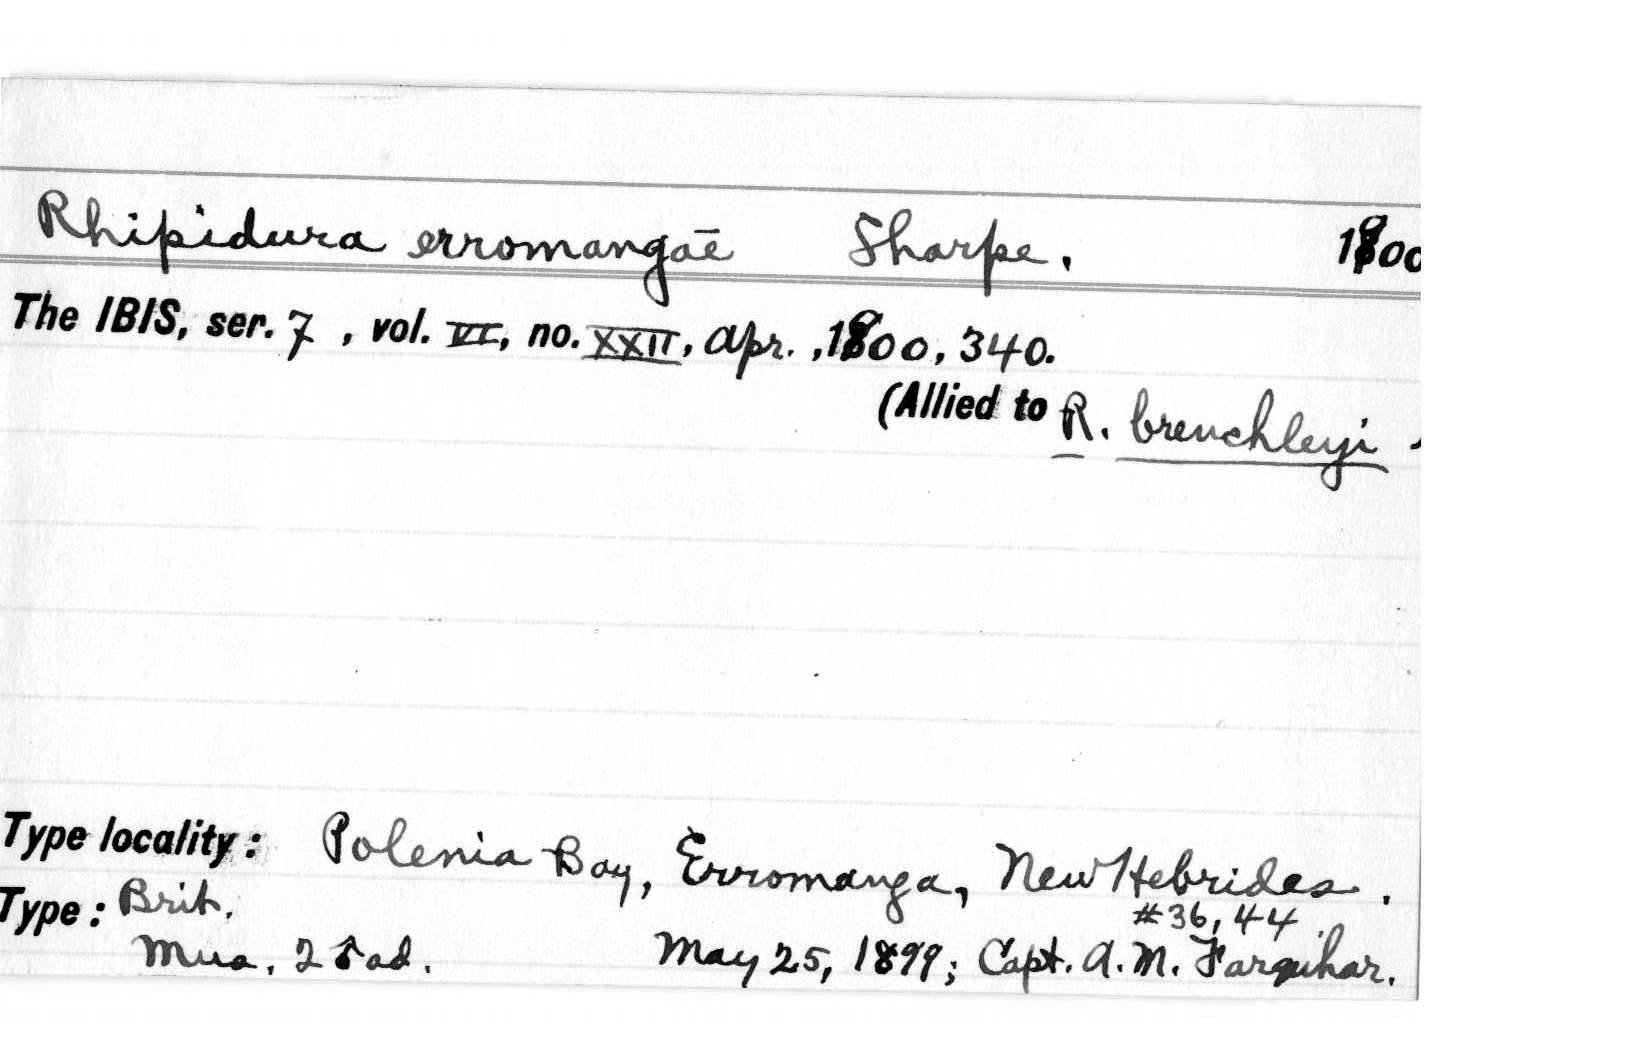 Rhipidura erromangae Sharpe. 1900
The IBIS, ser. 7, vol. VI, no. XXII, Apr., 1900, 340.
(Allied to R. brenchleyi
Type locality: Polenia Bay, Erromanga, New Hebrides.
Type: Brit. #36, 44.
Mus. 2 ♂ ad. May 25, 1899; Capt. A. M. Farquhar.